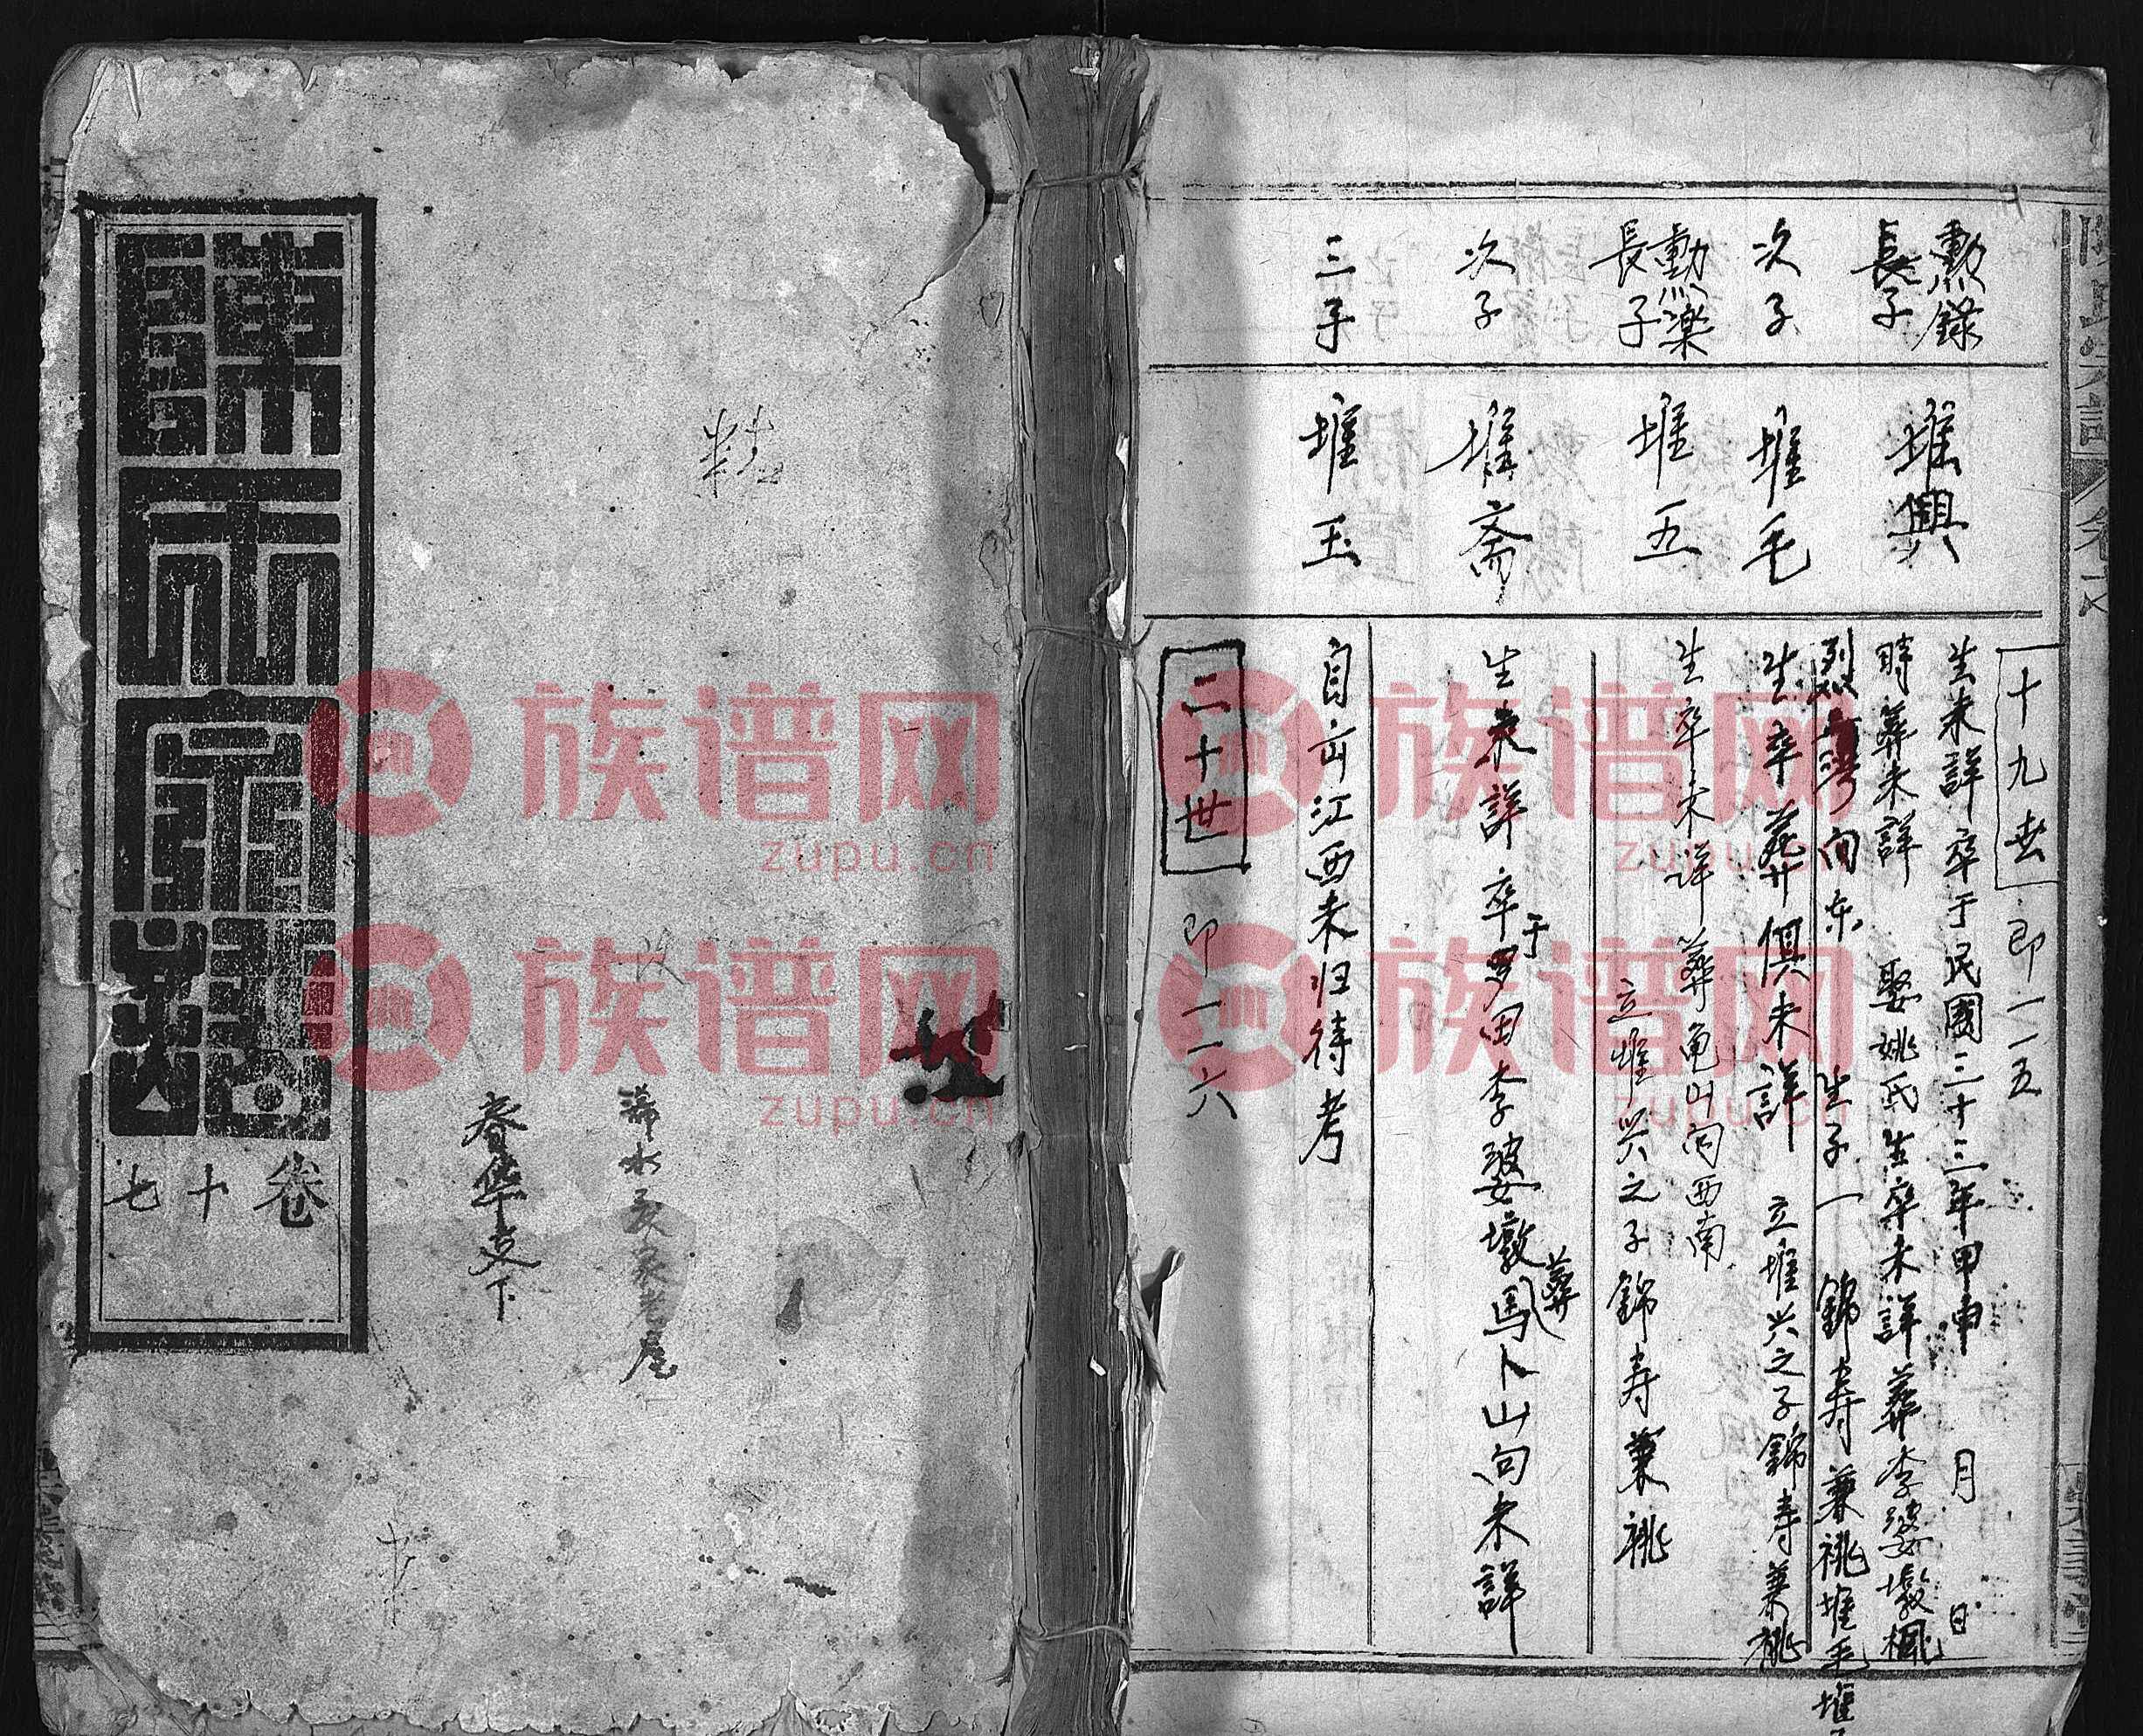 陳氏宗譜
卷十七
春华支下
十九世 即一一五
勲錄
長子
堆興
生未詳卒于民國三十三年甲申 月 日
時葬未詳 娶姚氏生卒未詳葬李婆墩楓
向东 生子一 錦寿兼祧堆毛堆
次子
堆毛
生卒葬俱未詳 立堆兴之子錦寿兼祧
勲樂
長子
堆五
生卒未详葬龟山向西南
立堆兴之子錦寿兼祧
次子
堆斋
生未詳卒于罗田李婆墩葬馬卜山向未詳
三子
堆玉
自亡江西未归待考
二十世 即一一六
族谱网
zupu.cn
族谱网
zupu.cn
族谱网
zupu.cn
族谱网
zupu.cn